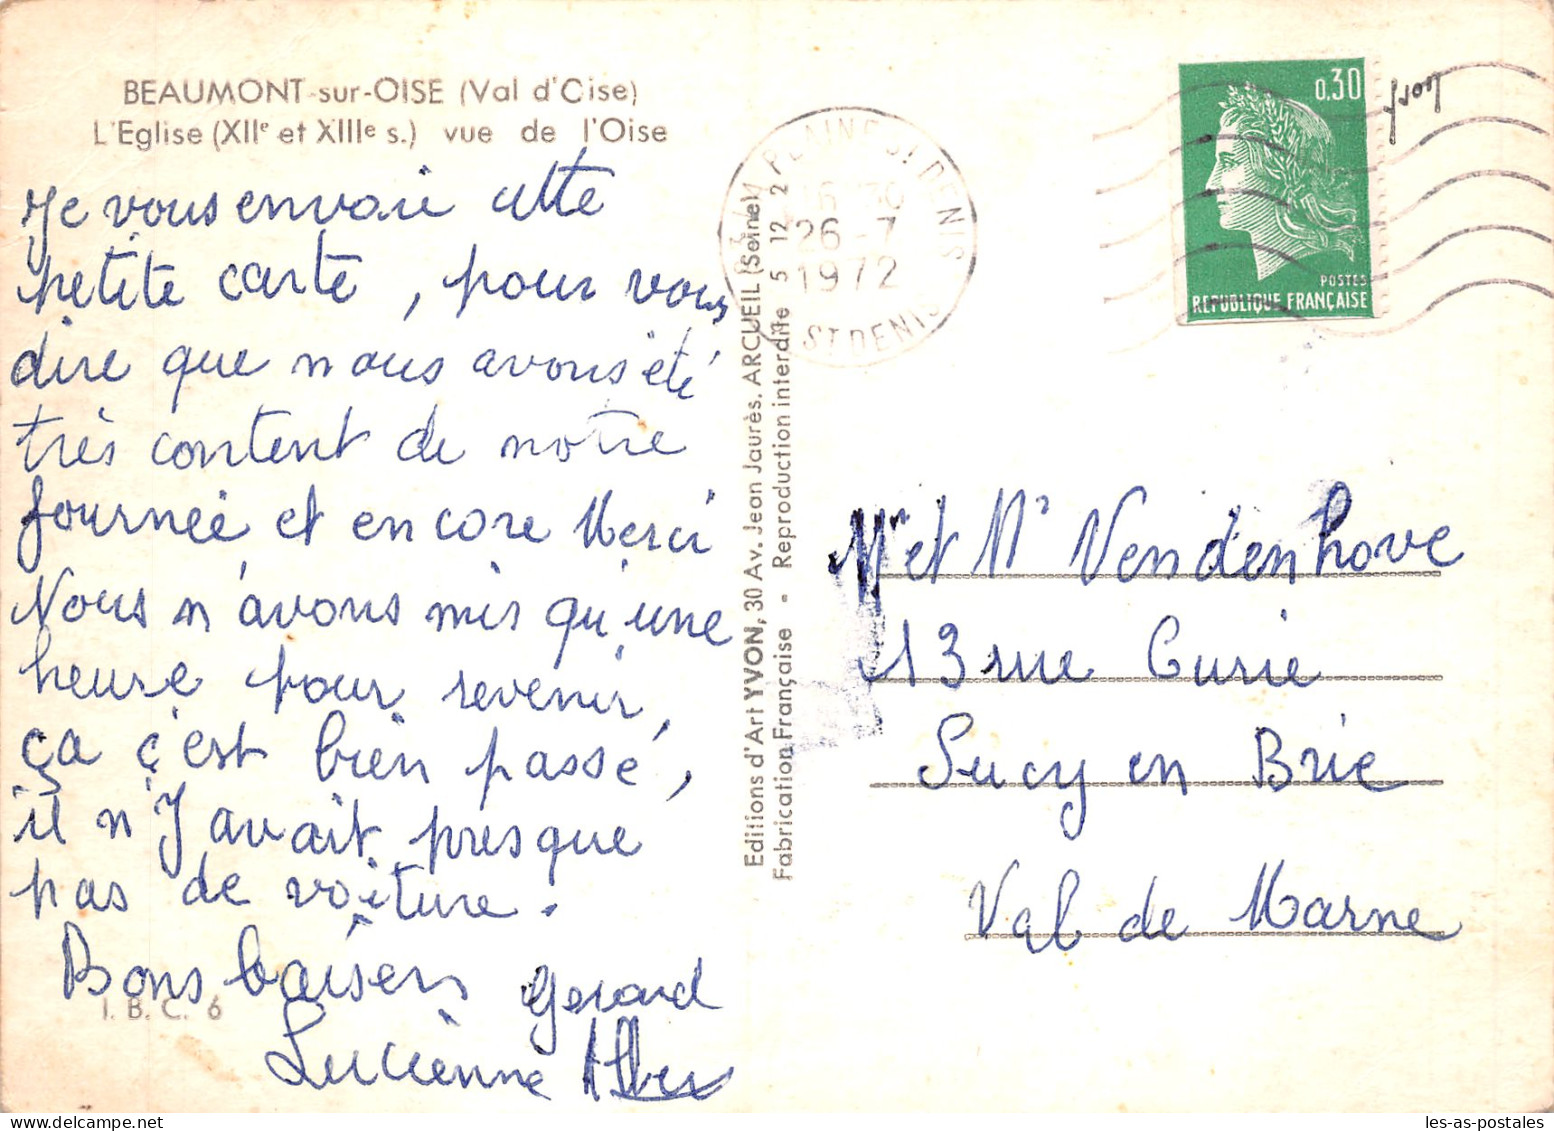 BEAUMONT-sur-OISE (Val d'Oise)
L'Eglise (XIIe et XIIIe s.) vue de l'Oise
Je vous envoie cette
petite carte, pour vous
dire que nous avons été
très content de notre
journée et encore Merci
Nous n'avons mis qu'une
heure pour revenir,
ça c'est bien passé,
il n'y avait presque
pas de voiture.
Bons baisers
Gerard
Lucienne
I. B. C. 6
Editions d'Art YVON, 30 Av. Jean Jaurès, ARCUEIL (Seine)
Fabrication Française - Reproduction interdite 5 12 2
LA PLAINE ST DENIS
16 30
26-7
1972
ST DENIS
0,30
POSTES
REPUBLIQUE FRANÇAISE
Mr et Me Vendenhove
13 rue Curie
Sucy en Brie
Val de Marne
les-as-postales